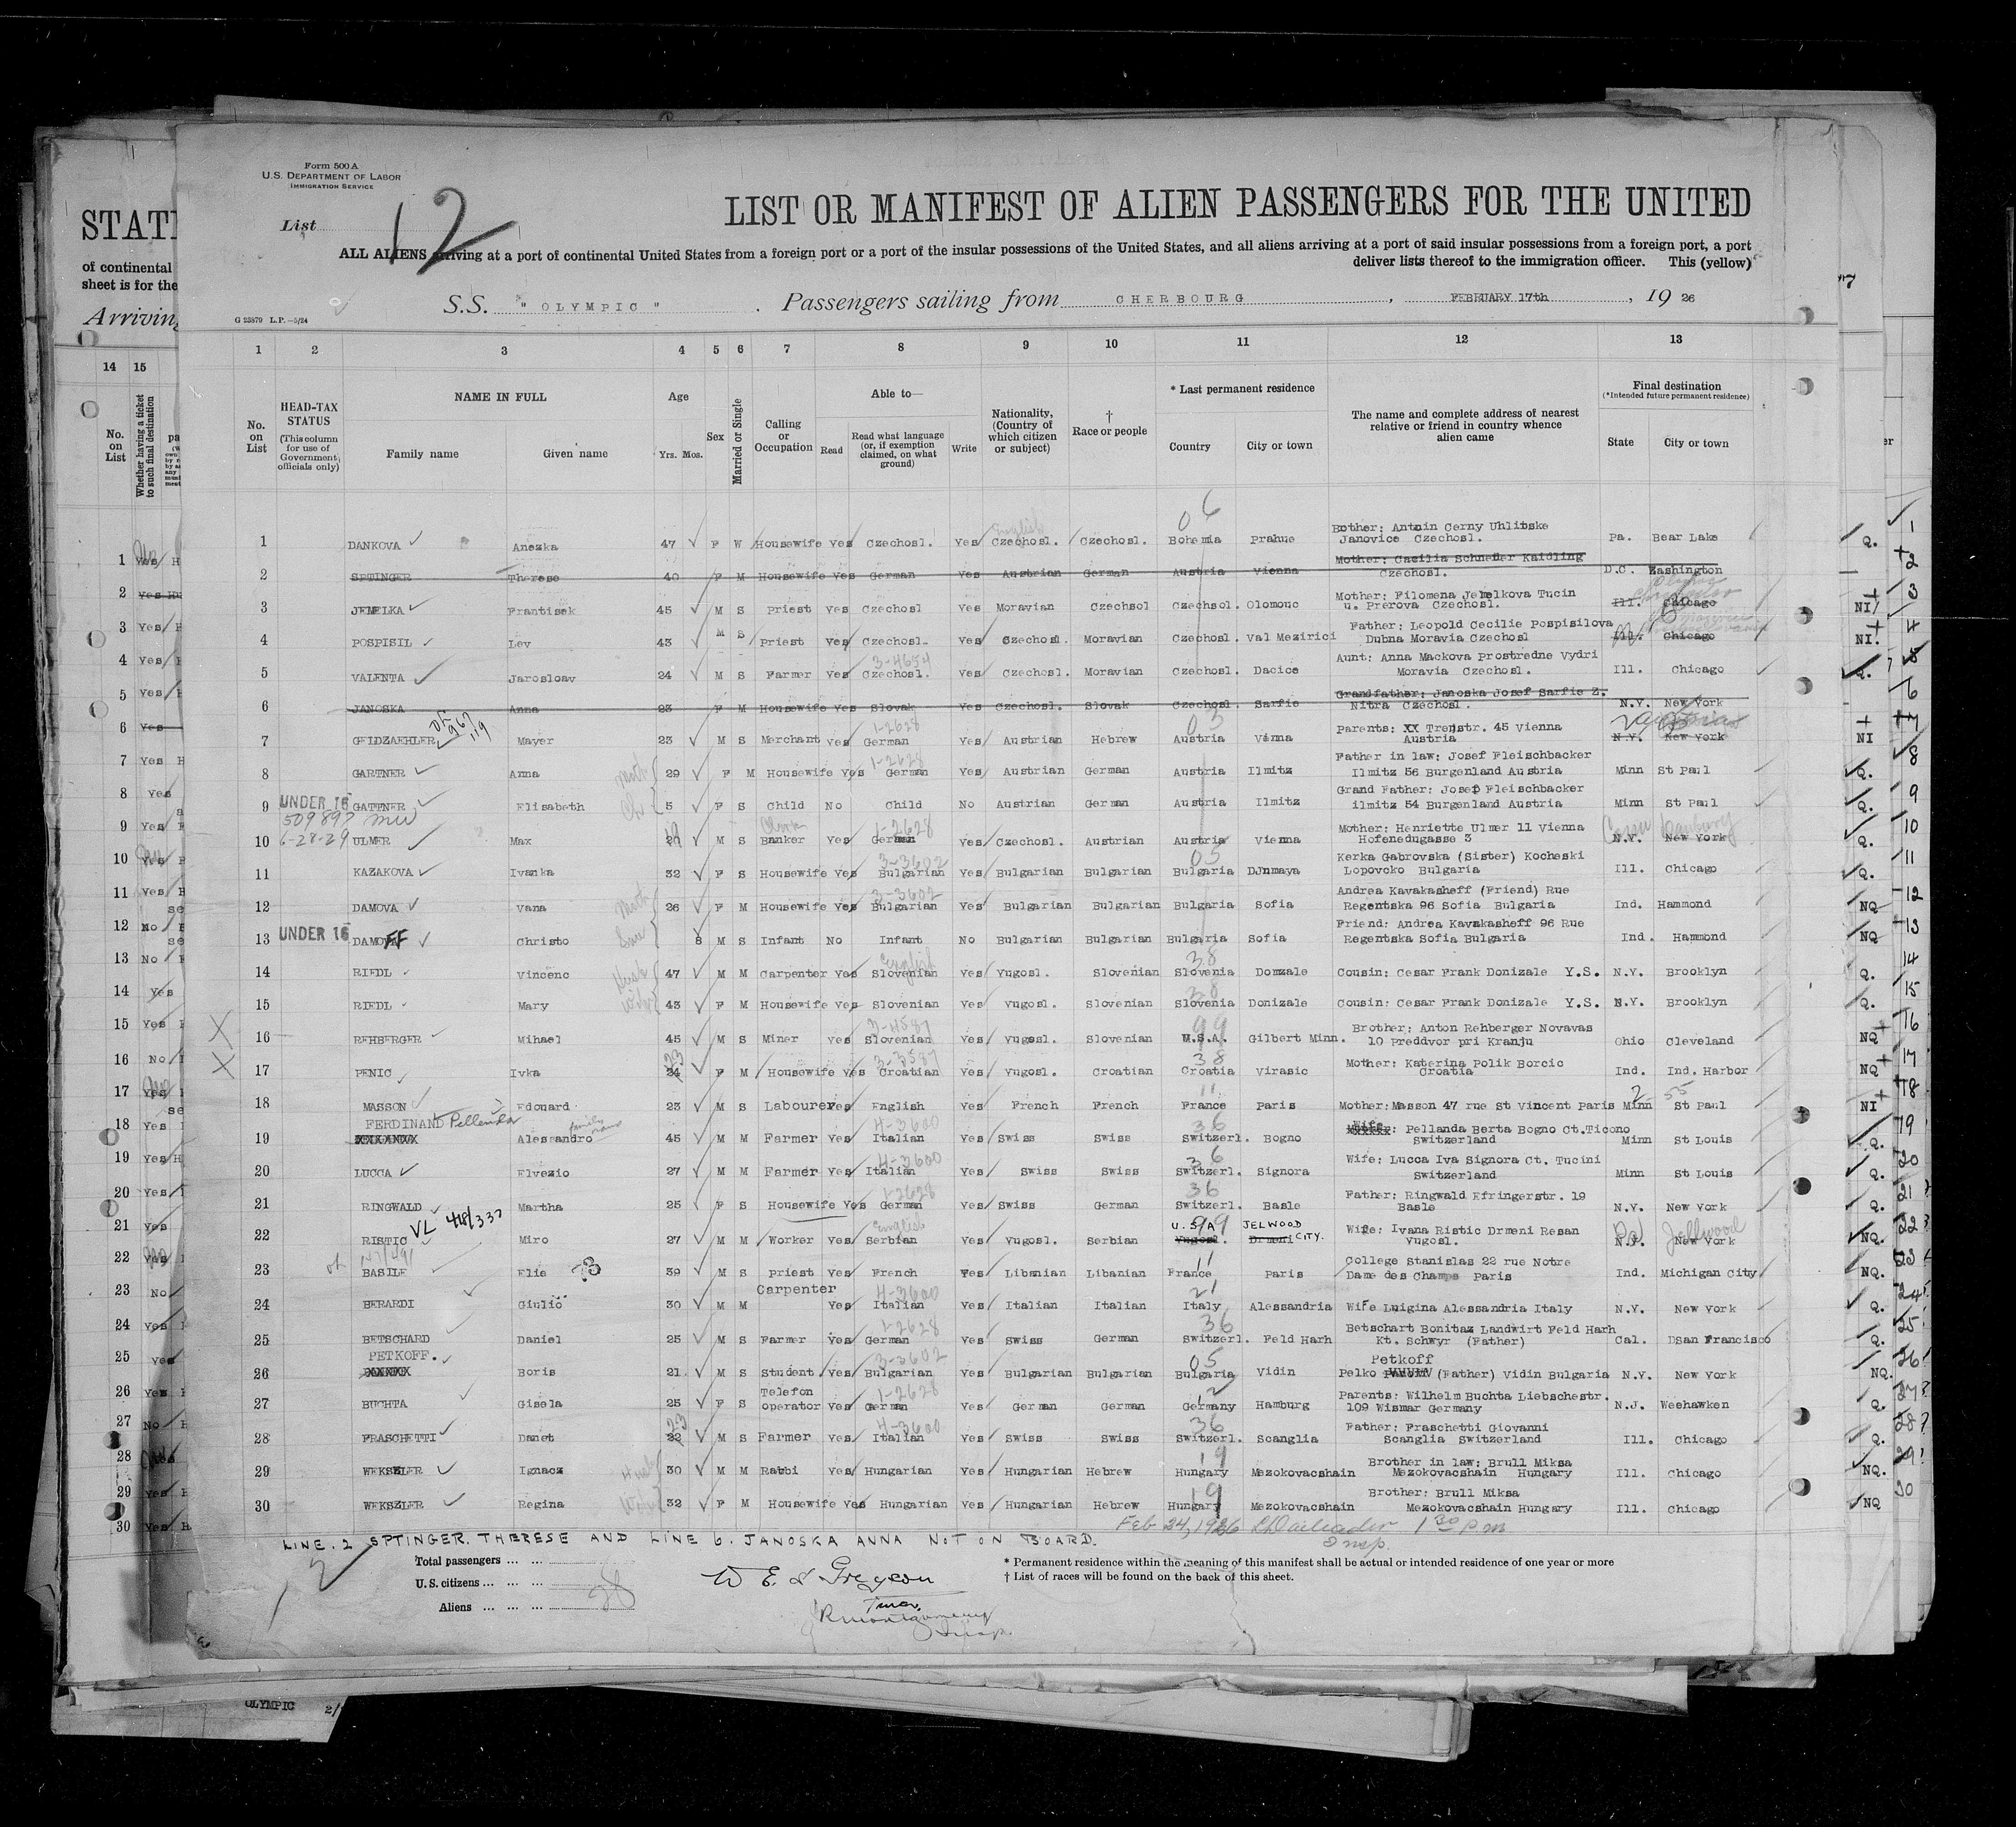 Form 500 A
U.S. DEPARTMENT OF LABOR
IMMIGRATION SERVICE
List 12
LIST OR MANIFEST OF ALIEN PASSENGERS FOR THE UNITED
ALL ALIENS arriving at a port of continental United States from a foreign port or a port of the insular possessions of the United States, and all aliens arriving at a port of said insular possessions from a foreign port, a port
deliver lists thereof to the immigration officer. This (yellow)
S.S. " OLYMPIC " . Passengers sailing from CHERBOURG , FEBRUARY 17th , 19 26
G 23879 L.P.—5/24
STAT
of continental
sheet is for the
Arriving
1 2 3 4 5 6 7 8 9 10 11 12 13
14 15
No. on List
Whether having a ticket to such final destination
No. on List
HEAD-TAX STATUS (This column for use of Government officials only)
NAME IN FULL
Family name
Given name
Age
Yrs. Mos.
Sex
Married or Single
Calling or Occupation
Able to—
Read
Read what language (or, if exemption claimed, on what ground)
Write
Nationality, (Country of which citizen or subject)
† Race or people
* Last permanent residence
Country
City or town
The name and complete address of nearest relative or friend in country whence alien came
Final destination
(*Intended future permanent residence)
State
City or town
1 DANKOVA Anezka 47 F W Housewife Yes Czechosl. Yes English Czechosl. Czechosl. 06 Bohemia Prahue Bother: Antnin Cerny Uhlitske Janovice Czechosl. Pa. Bear Lake Q.
2 SPTINGER Therese 40 F M Housewife Yes German Yes Austrian German Austria Vienna Mother: Casilia Schneder Kaidling Czechosl. D.C. Washington
3 JEMELKA Frantisek 45 M S Priest Yes Czechosl Yes Moravian Czechsol Czechsol. Olomouc Mother: Filomena Jemelkova Tucin u. Prerova Czechosl. Ill. Chicago NI
4 POSPISIL Lev 43 M S Priest Yes Czechosl. Yes Czechosl. Moravian Czechosl. Val Mezirici Father: Leopold Cecilie Pospisilova Dubna Moravia Czechosl Ill. Chicago NI.
5 VALENTA Jarosloav 24 M S Farmer Yes 3-4654 Czechosl. Yes Czechosl. Moravian Czechosl. Dacice Aunt: Anna Mackova Prostredne Vydri Moravia Czechosl. Ill. Chicago Q.
6 JANOSKA Anna 23 F M Housewife Yes Slovak Yes Czechosl. Slovak Czechosl. Sarfie Grandfather: Janoska Josef Sarfie Z. Nitra Czechosl. N.Y. New York
7 GELDZAEHLER Mayer 23 M S Merchant Yes 1-2628 German Yes Austrian Hebrew 03 Austria Vinna Parents: XX Trenstr. 45 Vienna Austria N.Y. New York Austria NI
8 GARTNER Anna 29 F M Housewife Yes 1-2628 German Yes Austrian German Austria Ilmitz Father in law: Josef Fleischbacker Ilmitz 56 Burgenland Austria Minn St Paul Q.
9 UNDER 16 GATTNER Elisabeth 5 F S Child No Child No Austrian German Austria Ilmitz Grand Father: Josef Fleischbacker ilmitz 54 Burgenland Austria Minn St Paul Q.
509897 MW
6-28-29
10 ULMER Max 20 19 M S Banker Clerk Yes 1-2628 German Yes Czechosl. Austrian Austria Vienna Mother: Henriette Ulmer 11 Vienna Hofenedugasse 3 N.Y. New York Conn Danbury Q.
11 KAZAKOVA Ivanka 32 F S Housewife Yes 3-3602 Bulgarian Yes Bulgarian Bulgarian 05 Bulgaria DJnmaya Kerka Gabrovska (Sister) Kocheski Lopovcko Bulgaria Ill. Chicago Q.
12 DAMOVA Vana 26 F M Housewife Yes 3-3602 Bulgarian Yes Bulgarian Bulgarian Bulgaria Sofia Andrea Kavakasheff (Friend) Rue Regentska 96 Sofia Bulgaria Ind. Hammond NQ
13 UNDER 16 DAMOFF Christo 8 M S Infant No Infant No Bulgarian Bulgarian Bulgaria Sofia Friend: Andrea Kavakasheff 96 Rue Regentska Sofia Bulgaria Ind. Hammond NQ
14 RIEDL Vincenc 47 M M Carpenter Yes English Slovenian Yes Yugosl. Slovenian 38 Slovenia Domzale Cousin: Cesar Frank Donizale Y.S. N.Y. Brooklyn Q.
15 RIEDL Mary 43 F M Housewife Yes Slovenian Yes Yugosl. Slovenian 38 Slovenia Donizale Cousin: Cesar Frank Donizale Y.S. N.Y. Brooklyn Q.
16 REHBERGER Mihael 45 M S Miner Yes 3-4587 Slovenian Yes Yugosl. Slovenian 99 U.S.A. Gilbert Minn. Brother: Anton Rehberger Novavas 10 Preddvor pri Kranju Ohio Cleveland NQ
17 PENIC Ivka 24 23 F M Housewife Yes 3-3587 Croatian Yes Yugosl. Croatian 38 Croatia Virasic Mother: Katerina Polik Borcic Croatia Ind. Ind. Harbor NQ
18 MASSON Edouard 23 M S Labourer Yes English Yes French French 11 France Paris Mother: Masson 47 rue St Vincent Paris Minn St Paul 2 55 NI
19 FERDINAND Pellanda Alessandro family name 45 M M Farmer Yes 4-3600 Italian Yes Swiss Swiss 36 Switzerl. Bogno Wife: Pellanda Berta Bogno Ct.Ticono Switzerland Minn St Louis Q.
20 LUCCA Elvezio 27 M M Farmer Yes 4-3600 Italian Yes Swiss Swiss 36 Switzerl. Signora Wife: Lucca Iva Signora Ct. Tucini Switzerland Minn St Louis Q.
21 RINGWALD Martha 25 F S Housewife Yes 1-2628 German Yes Swiss German 36 Switzerl. Basle Father: Ringwald Efringerstr. 19 Basle N.Y. New York Q.
VL 418/337
22 RISTIC Miro 27 M M Worker Yes English Serbian Yes Yugosl. Serbian U.S.A 99 Yugosl. JELWOOD CITY. Drmeni Wife: Ivana Ristic Drmeni Resan Yugosl. N.Y. New York Pa Jellwood NQ.
23 BASILE Elie 39 M S Priest Yes French Yes Libanian Libanian 11 France Paris College Stanislas 22 rue Notre Dame des Champs Paris Ind. Michigan City NQ.
24 BERARDI Giulio 30 M M Carpenter Yes 4-3600 Italian Yes Italian Italian 21 Italy Alessandria Wife Luigina Alessandria Italy N.Y. New York Q.
25 BETSCHARD Daniel 25 M S Farmer Yes 1-2628 German Yes Swiss German 36 Switzerl. Feld Harh Betschart Bonitaz Landwirt Feld Harh Kt. Schwyr (Father) Cal. DSan Francisco Q.
26 PETKOFF. Boris 21 M S Student Yes 3-3602 Bulgarian Yes Bulgarian Bulgarian 05 Bulgaria Vidin Pelko Petkoff (Father) Vidin Bulgaria N.Y. New York NQ.
27 BUCHTA Gisela 25 F S Telefon operator Yes 1-2628 German Yes German German 12 Germany Hamburg Parents: Wilhelm Buchta Liebschestr. 109 Wismar Germany N.J. Weehawken Q.
28 FRASCHETTI Danet 22 23 M S Farmer Yes 4-3600 Italian Yes Swiss Swiss 36 Switzerl. Scanglia Father: Fraschetti Giovanni Scanglia Switzerland Ill. Chicago Q.
29 WEKSZLER Ignacz 30 M M Rabbi Yes Hungarian Yes Hungarian Hebrew 19 Hungary Mezokovacshain Brother in law: Brull Miksa Mezokovacshain Hungary Ill. Chicago NQ.
30 WEKSZLER Regina 32 F M Housewife Yes Hungarian Yes Hungarian Hebrew 19 Hungary Mezokovacshain Brother: Brull Miksa Mezokovacshain Hungary Ill. Chicago NQ
Feb 24, 1926 1 30 P m
Insp.
LINE. 2 SPTINGER. THERESE AND LINE 6. JANOSKA ANNA NOT ON BOARD.
12
Total passengers ... ...
U.S. citizens ... ... ...
Aliens ... ... ... 28
R Montgomery
Insp.
* Permanent residence within the meaning of this manifest shall be actual or intended residence of one year or more
† List of races will be found on the back of this sheet.
OLYMPIC 2/